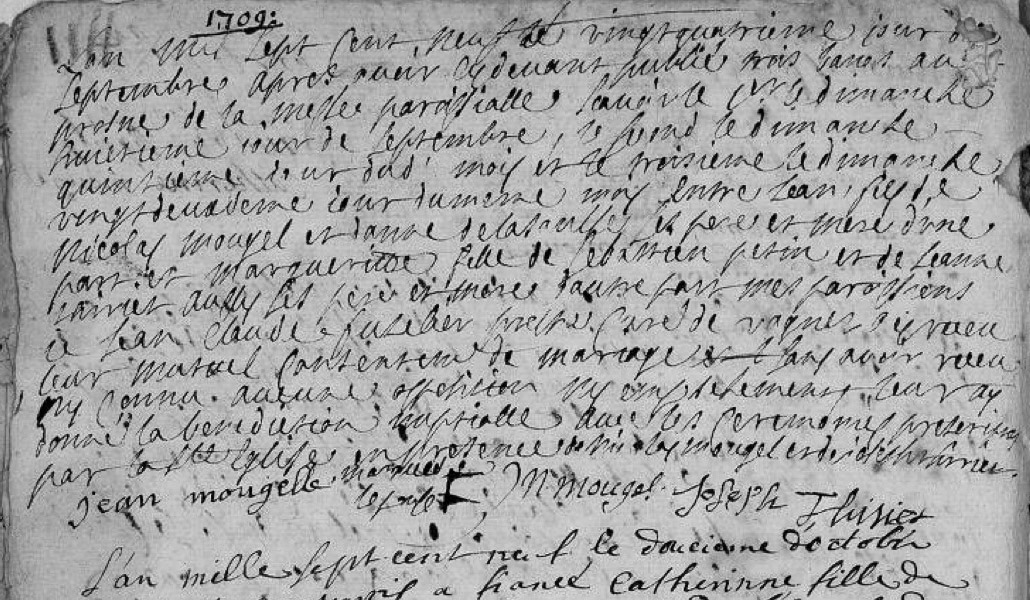 1709:
L'an mil sept cent neuf le vingtquatrieme jour de
septembre apres avoir cydevant publié trois bancs au
prosne de la messe paroissialle scavoir le dimanche
huictieme jour de septembre, le second le dimanche
quinzieme jour dud mois et le troisieme le dimanche
vingtdeuxieme jour du meme mois entre Jean fils de
Nicolas mougel et danne ses pere et mere d'une
part et margueritte fille de sebastien petin et de Jeanne
aussy ses pere et mere d'autre part mes paroissiens
Je Jean Claude prestre curé de vagney ay receu
leur mutuel consentem de mariage sans avoir receu
ny connu aucune opposition ny empeschement leur ay
donné la benediction nuptialle avec les ceremonies prescrites
par la Ste Eglise en presence de Nicolas mougel et de Joseph
Jean mougelle marque de
l'epouse N Mougel Joseph Thiriet
L'an mille sept cent neuf le doucieme doctobre
a fiancé Catherinne fille de